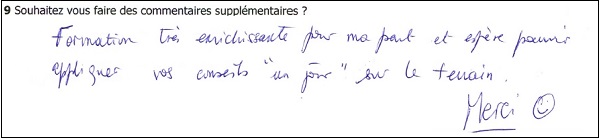 9 Souhaitez vous faire des commentaires supplémentaires ?
Formation très enrichissante pour ma part et espère pouvoir
appliquer vos conseils "un jour" sur le terrain.
Merci ☺